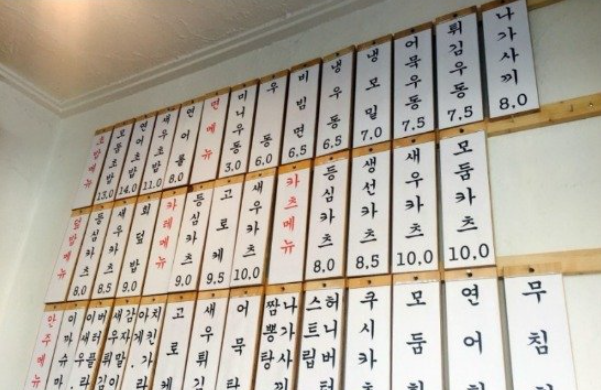 초밥메뉴
모듬초밥 13.0
연어초밥 14.0
새우초밥 11.0
연어롤 8.0
면메뉴
미니우동 3.0
우동 6.0
비빔면 6.5
냉우동 6.5
냉모밀 7.0
어묵우동 7.5
튀김우동 7.5
나가사끼 8.0
덮밥메뉴
등심카츠 8.0
새우카츠 8.5
회덮밥 9.0
카레메뉴
등심카츠 9.0
고로케 9.5
새우카츠 10.0
카츠메뉴
등심카츠 8.0
생선카츠 8.5
새우카츠 10.0
모둠카츠 10.0
안주메뉴
고로케
새우튀김
어묵탕
나가사끼
짬뽕탕
허니버터
스트립
쿠시카
모듬
연어
무침